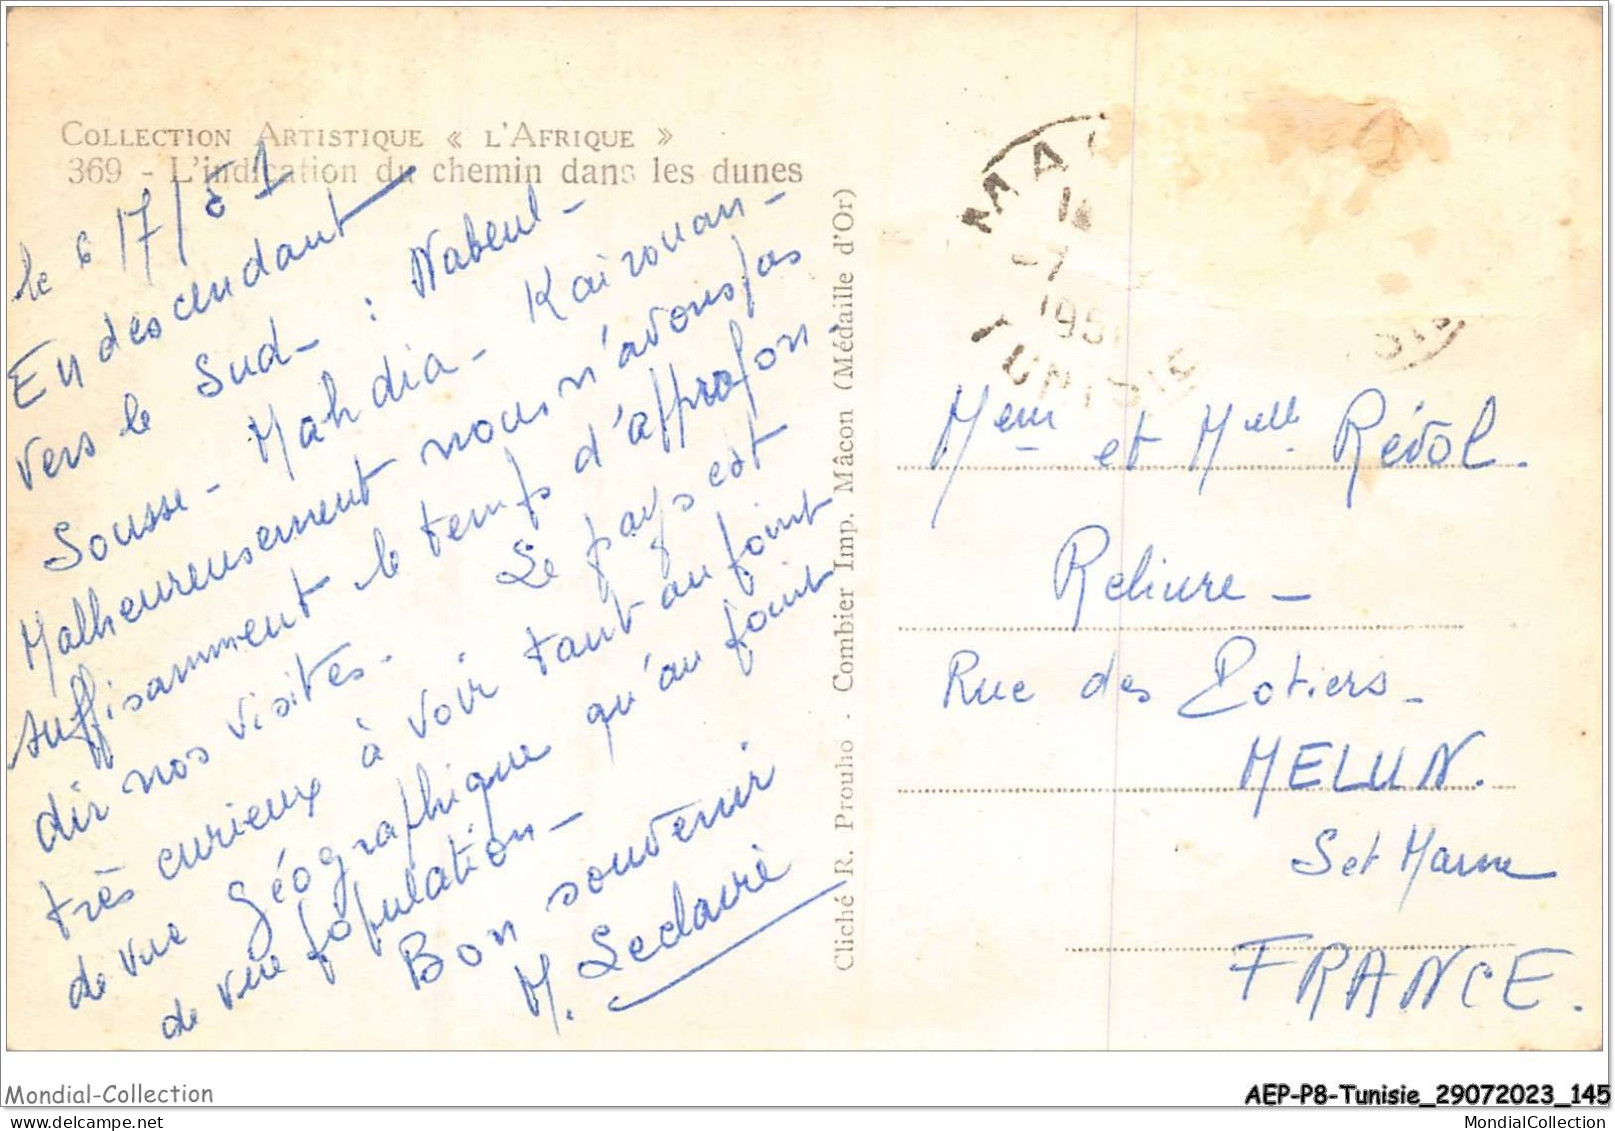 COLLECTION ARTISTIQUE « L'AFRIQUE »
369 - L'indication du chemin dans les dunes
le 6/7/51
En descendant
vers le Sud - : Nabeul -
Sousse - Mahdia - Kairouan -
Malheureusement nous n'avons pas
suffisamment le temps d'approfon-
dir nos visites. Le pays est
très curieux à voir tant au point
de vue géographique qu'au point
de vue population -
Bon souvenir
M. Leclavié
Cliché R. Prouho - Combier Imp. Mâcon (Médaille d'Or)
1951
TUNISIE
Mem et Melle Révol.
Reliure -
Rue des Potiers -
MELUN.
S et Marne
FRANCE.
Mondial-Collection
AEP-P8-Tunisie_29072023_145
MondialCollection.com